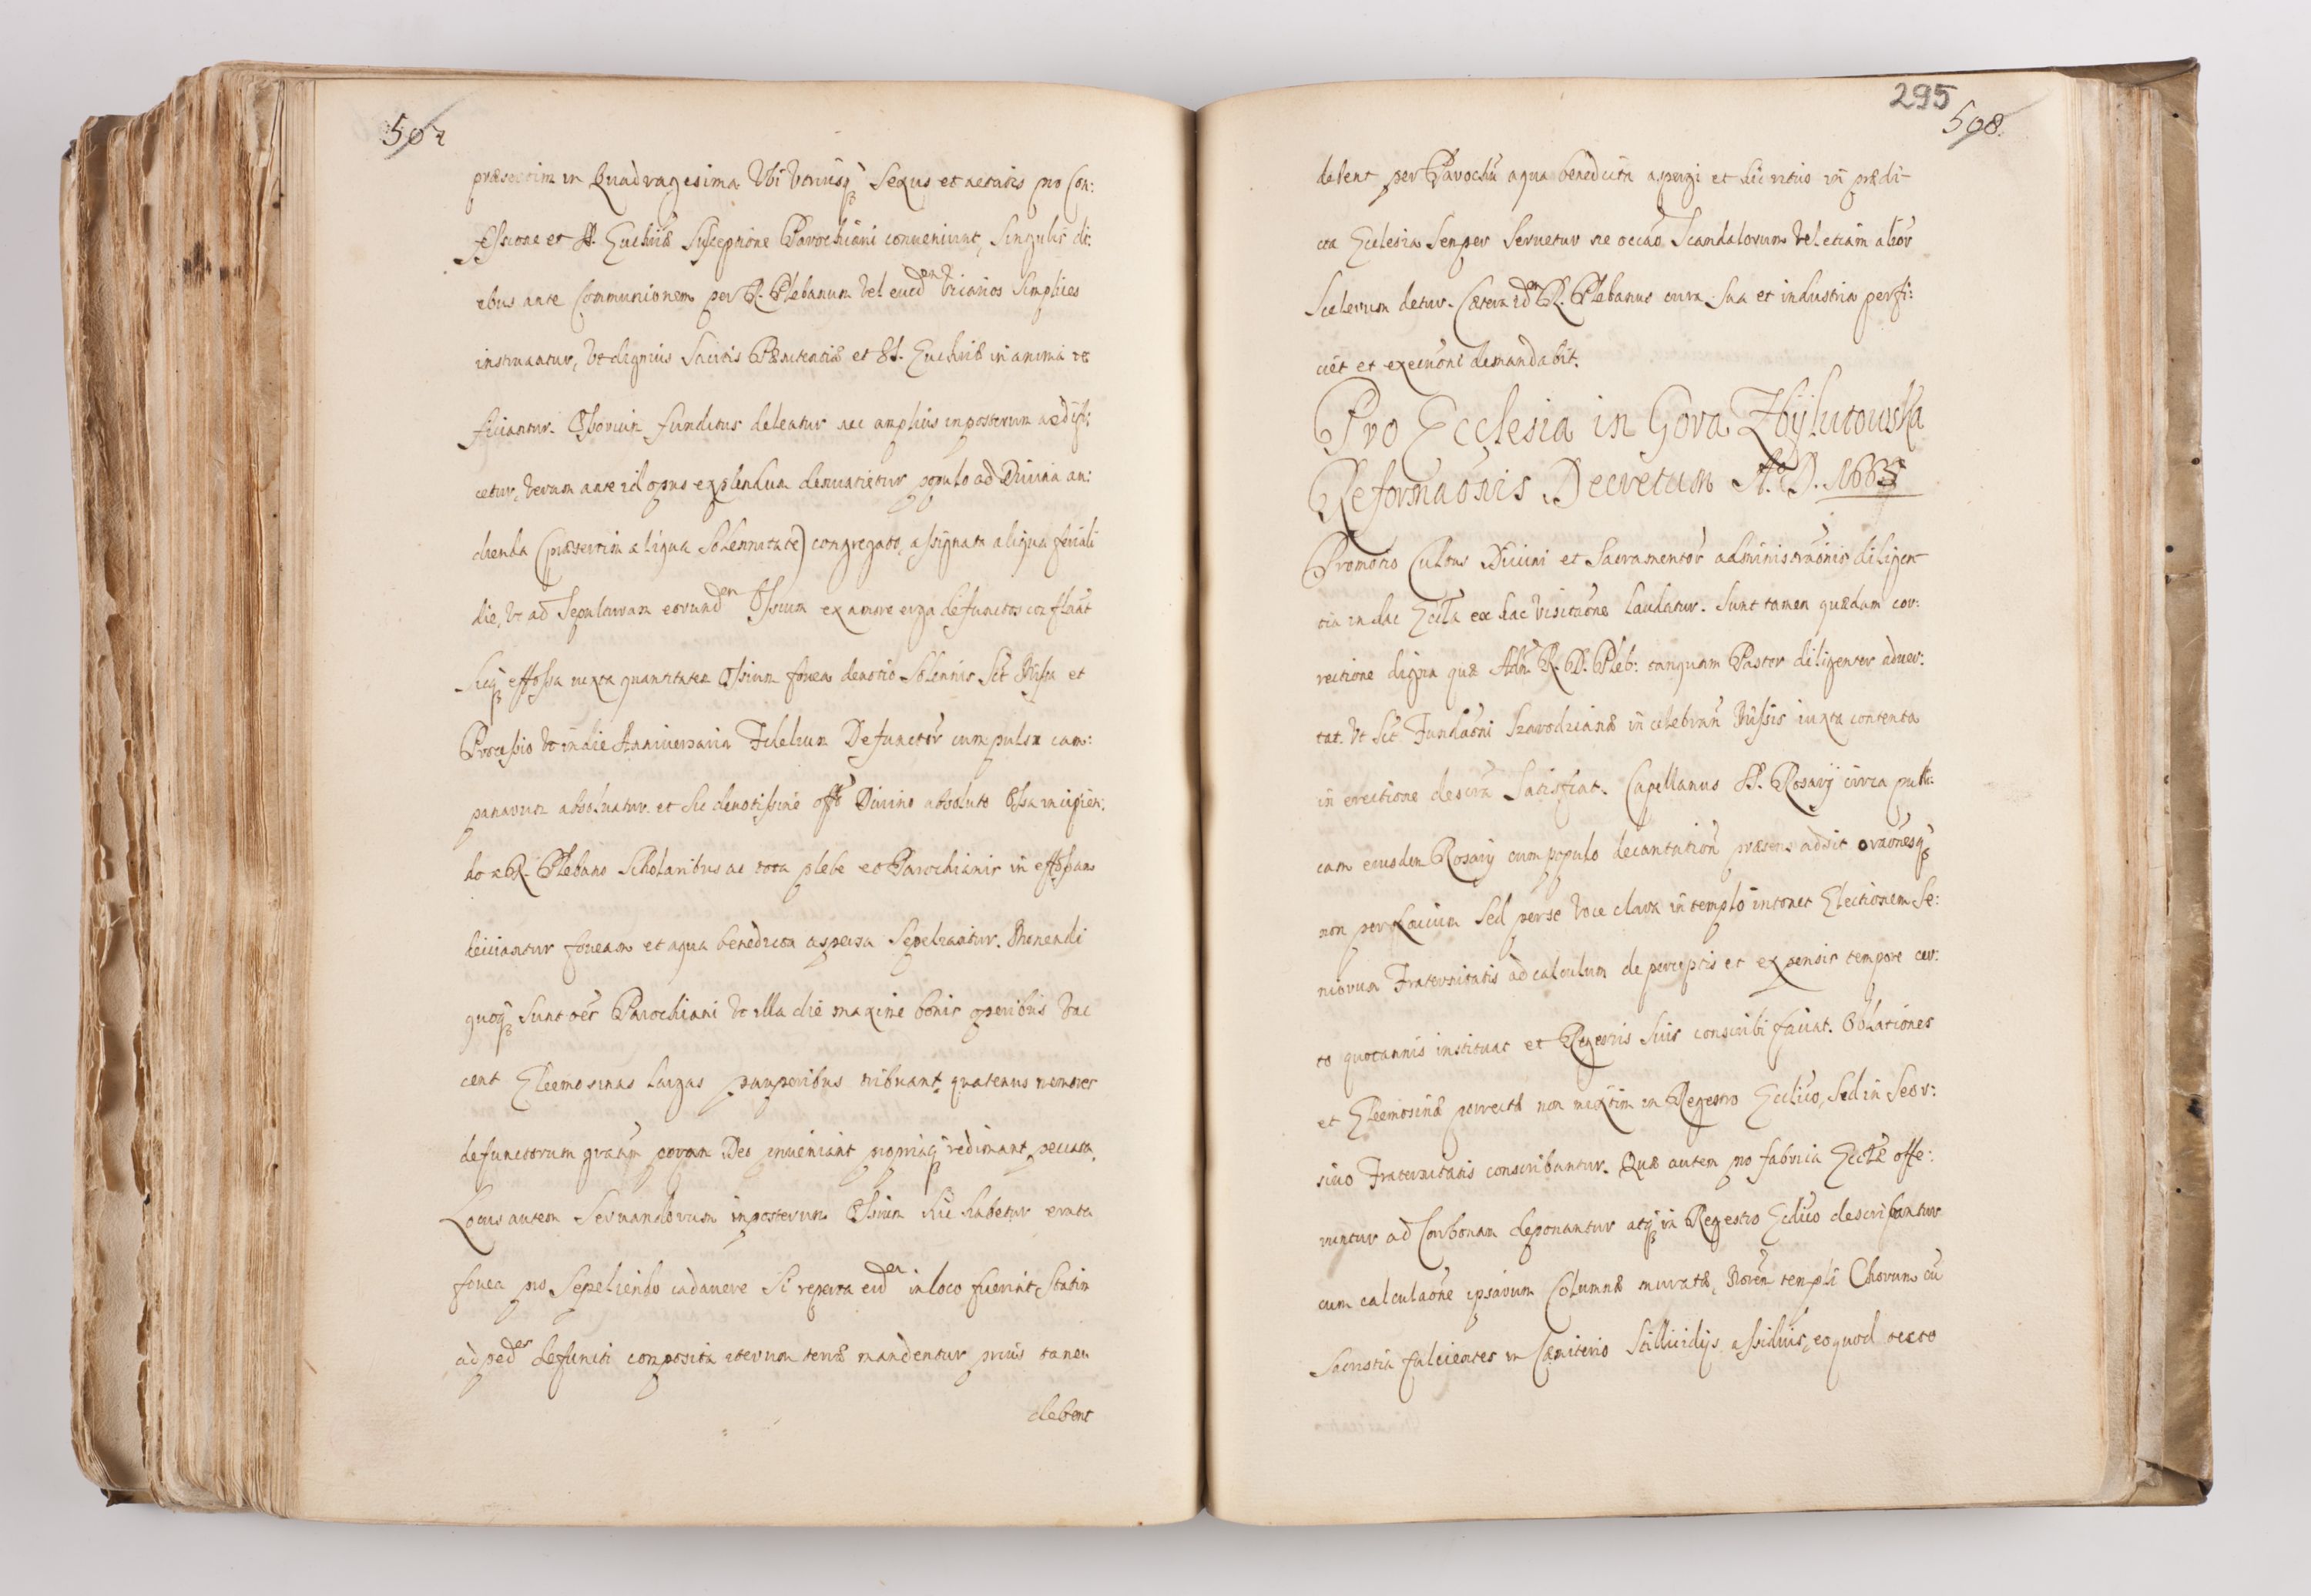 507
præsertim in Quadragesima Vbi Vtriusq; Sexus et aetatis pro Con:
fessione et SS. Euchriæ Susceptione Parochiani conveniunt, Singulis di:
ebus ante Communionem per R. Plebanum Vel eiusd Vicarios Simplices
instruantur, Vt dignius Sacris Pænitentiæ et SS. Euchriæ in anima re
ficiantur. Ossorium funditus deleatur nec amplius inposterum ædifi:
cetur, Verum ante id opus explendum denuncietur populo ad Divina au:
dienda (præsertim aliqua Solennitate) congregato, assignata aliqua feriali
die, Vt ad Sepulturam eorundem Ossium ex amore erga defunctos confluãt
Sicq; effossa iuxta quantitatem Ossium fovea devotio Solennis Sct Missa et
Processio Vt in die Anniversaria Fidelium Defunctor cum pulsu cam:
panarum absoluatur et Sic devotissime offo Divino absoluto Ossa incipien:
do a R. Plebano Scholaribus ac tota plebe et Parochianis in effossam
deiiciantur foveam et aqua benedicta aspersa Sepeliantur. Monendi
quoq; Sunt oes Parochiani Vt illa die maxime bonis operibus Vac
cent Eleemosinas largas pauperibus tribuant, quatenus memores
defunctorum gratm coram Deo inveniant propriaq; redimant peccata.
Locus autem Servandorum inposterum Ossium Sic habetur eruta
fovea pro Sepeliendo cadavere Si reperta eod in loco fuerint, Statim
ad pedes defuncti composita iterum terræ mandentur prius tamen
debent
295
508.
debent per Parochũ aqua benedicta aspergi et hic ritus in prædi-
cta Ecclesia Semper Servetur ne occao Scandalorum Vel etiam alior
Scelerum detur. Cætera idem R. Plebanus cura Sua et industria perfi:
ciet et execuoni demandabit.
Pro Ecclesia in Gora Zbÿlutowska
Reformaonis Decretum A. D. 1665
Promotio Cultus Divini et Sacramentor administraonis diligen-
tia in hac Eccla ex hac Visitaone laudatur. Sunt tamen quædam cor:
rectione digna quæ Adm. R. D. Pleb: tanquam Pastor diligenter adver:
tat. Vt Sct Fundaoni Szavodzianæ in celebran Missis iuxta contenta
in erectione descra Satisfiat. Capellanus SS. Rosarÿ circa publi:
cam eiusdem Rosarÿ cum populo decantation præsens adsit oraonesq;
non per Laicum Sed per se Voce clara in templo intonet Electionem Se:
niorum Fraternitatis ad calculum de perceptis et expensis tempore cer:
to quotannis instituat et Regestris Suis conscribi faciat. Oblationes
et Eleemosinæ porrectæ non mixtim in Regestro Ecclico, Sed in Seor:
sivo Fraternitatis conscribantur. Quæ autem pro fabrica Ecclæ offe:
runtur ad Corbonam deponantur atq; in Regestro Ecclico describantur
cum calculaone ipsarum Columnæ muratæ, Morem templi Chorum cũ
Sacristia fulcientes in Cæmiterio Stillicidÿs assiduis, eo quod tecto